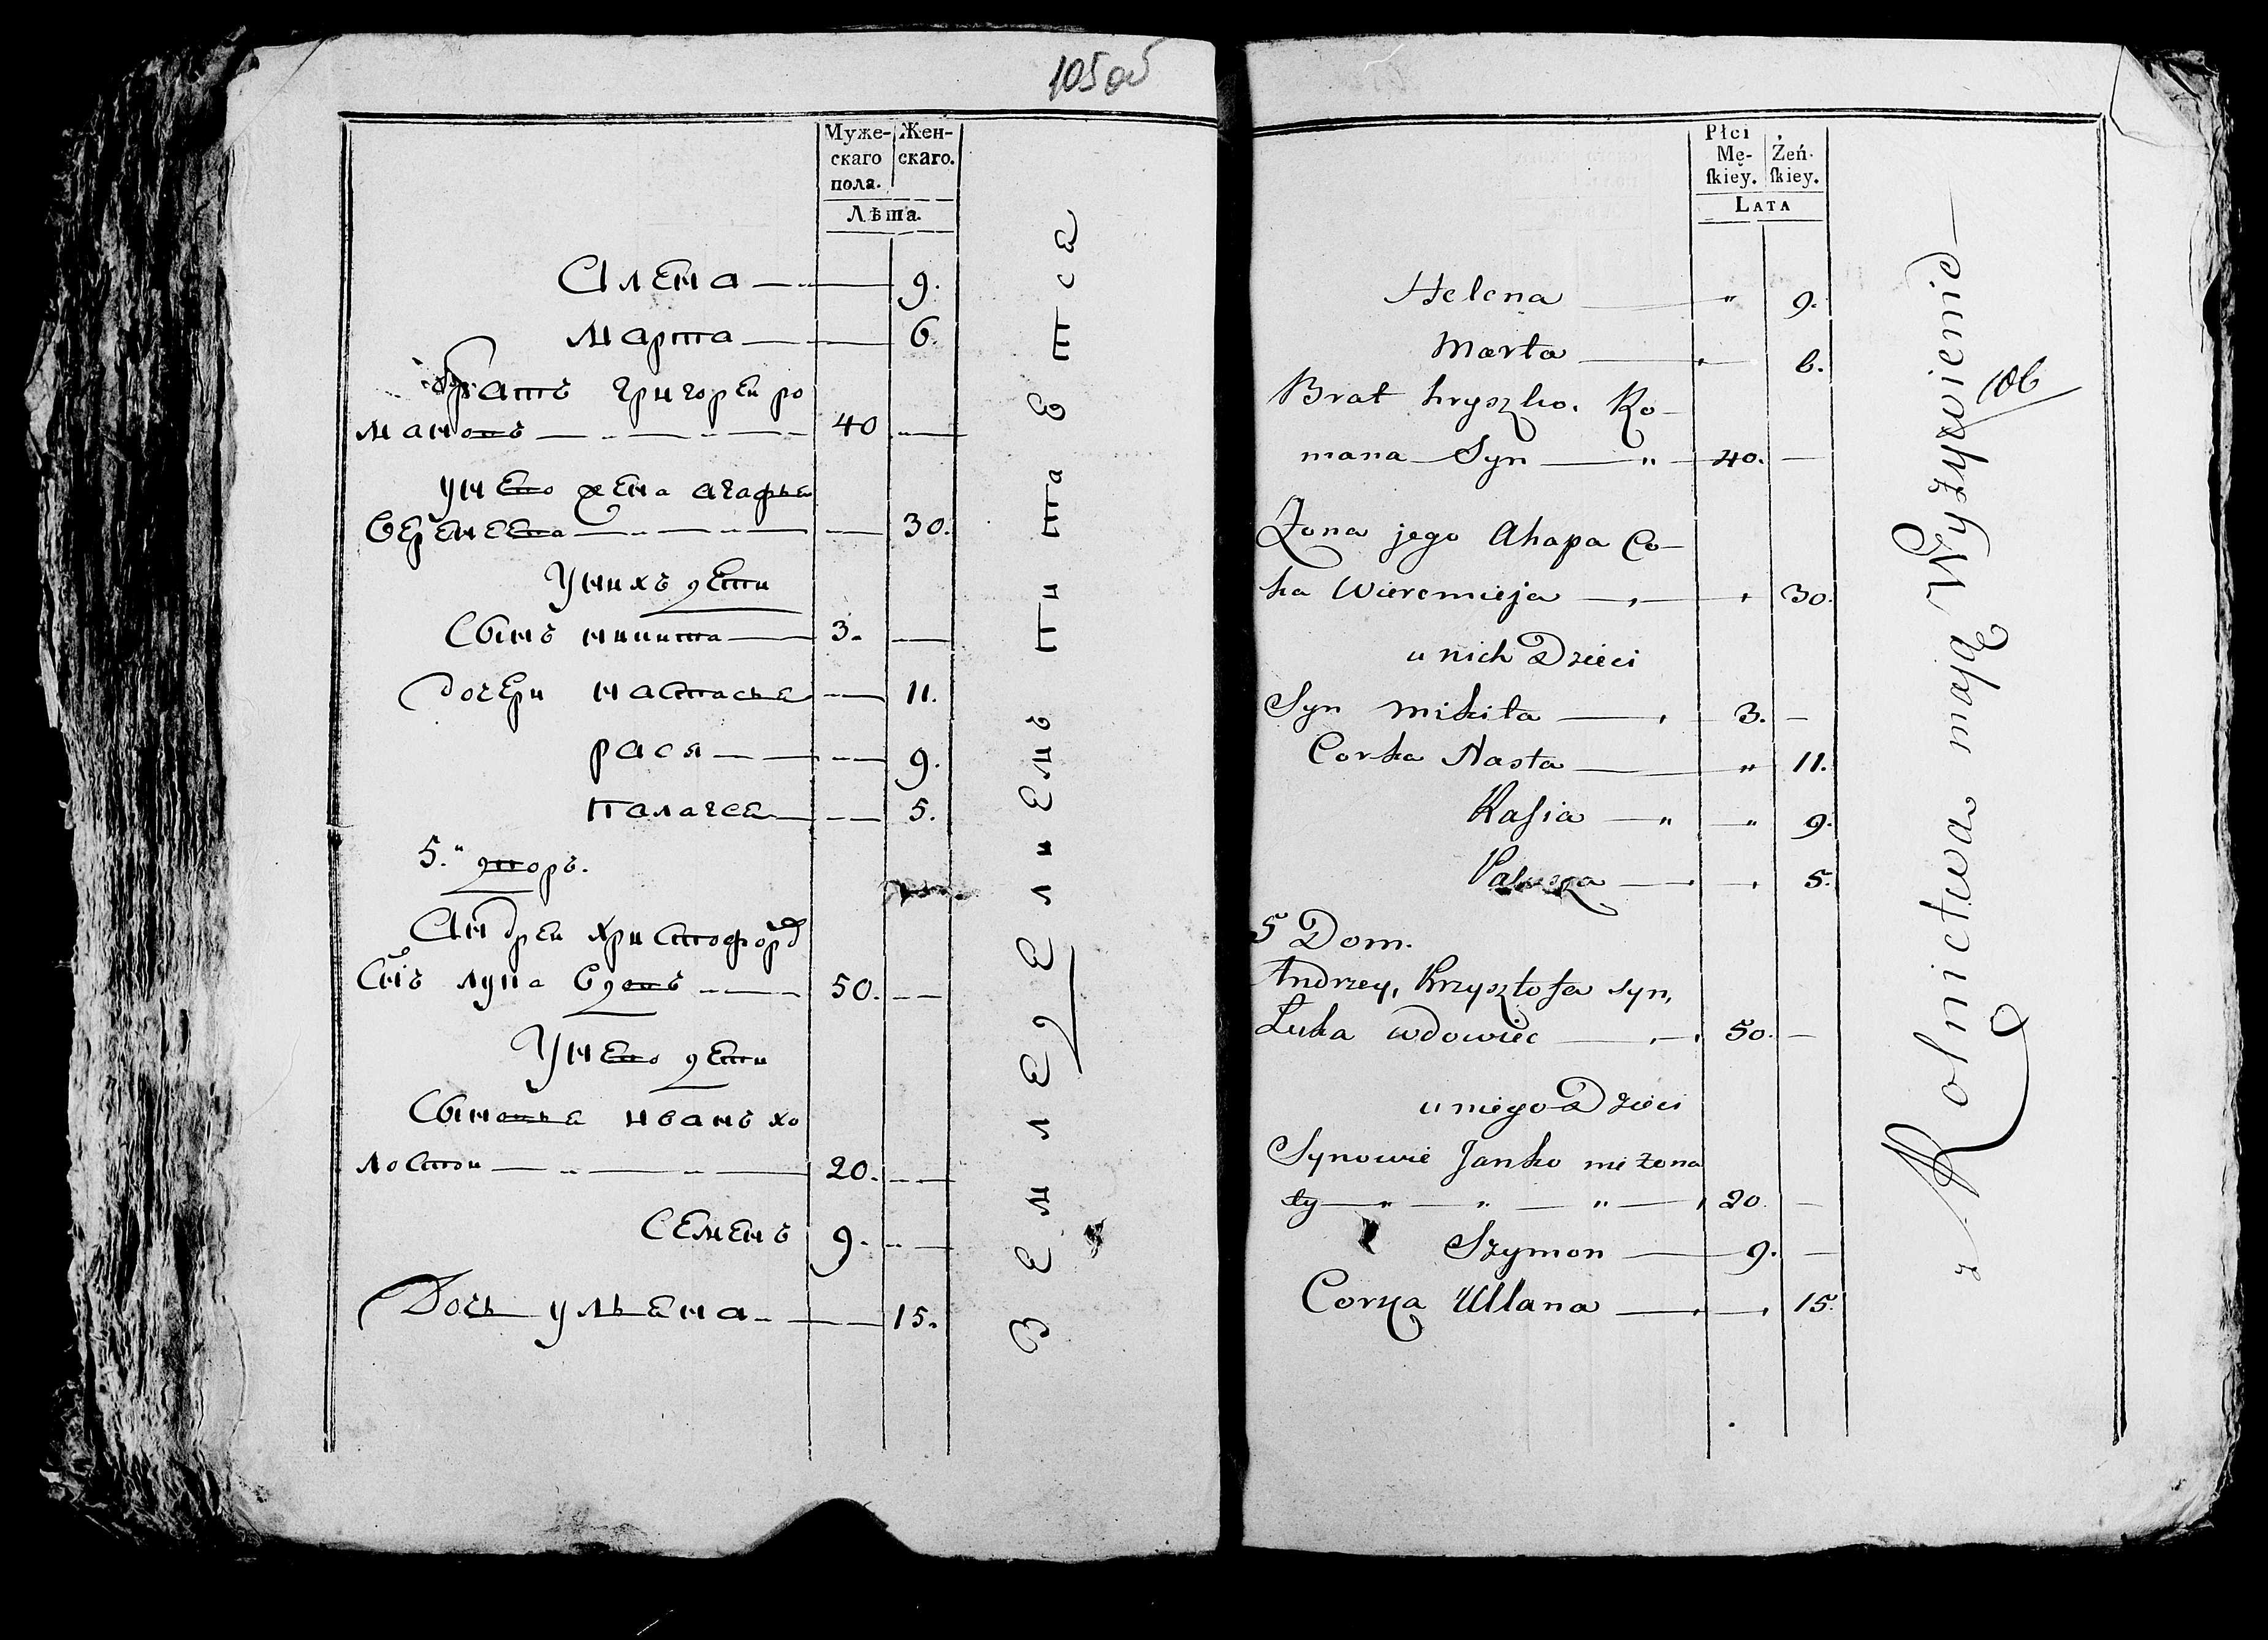 105 об
Муже- Жен-
скаго скаго.
пола.
Лѣта.
Алена 9.
Марта 6
братъ григореи ро
мановъ 40
унево жена агафья
Веремеева 30.
Унихъ дети
Сынъ микита 3.
дочери настасья 11.
рася 9.
палагея 5.
5." дворъ.
Андреи христофор
снъ лупа вдовъ 50.
Унево дети
Сыновья иванъ хо
лостои 20.
Семенъ 9.
Дочь ульяна 15.
Земледелиемъ питаетса
Płci
Mę- Żeń-
ſkiey. ſkiey.
LATA
Helena " 9.
Marta 6.
Brat hryszko. Ro-
mana Syn " 40.
Żona jego Ahapa Co-
ka Wieremieja 30.
u nich Dzieci
Syn Mikita 3.
Corka Nasta " 11.
Kaſia " " 9.
5.
5 Dom.
Andrzey, Krzysztofa syn,
Łuka wdowiec 50.
u niego Dzieci
Synowie Janko nie żona
ty " " " 20.
Szymon 9.
Corka Ullana 15.
z Rolnictwa mają Wyżywienie
106